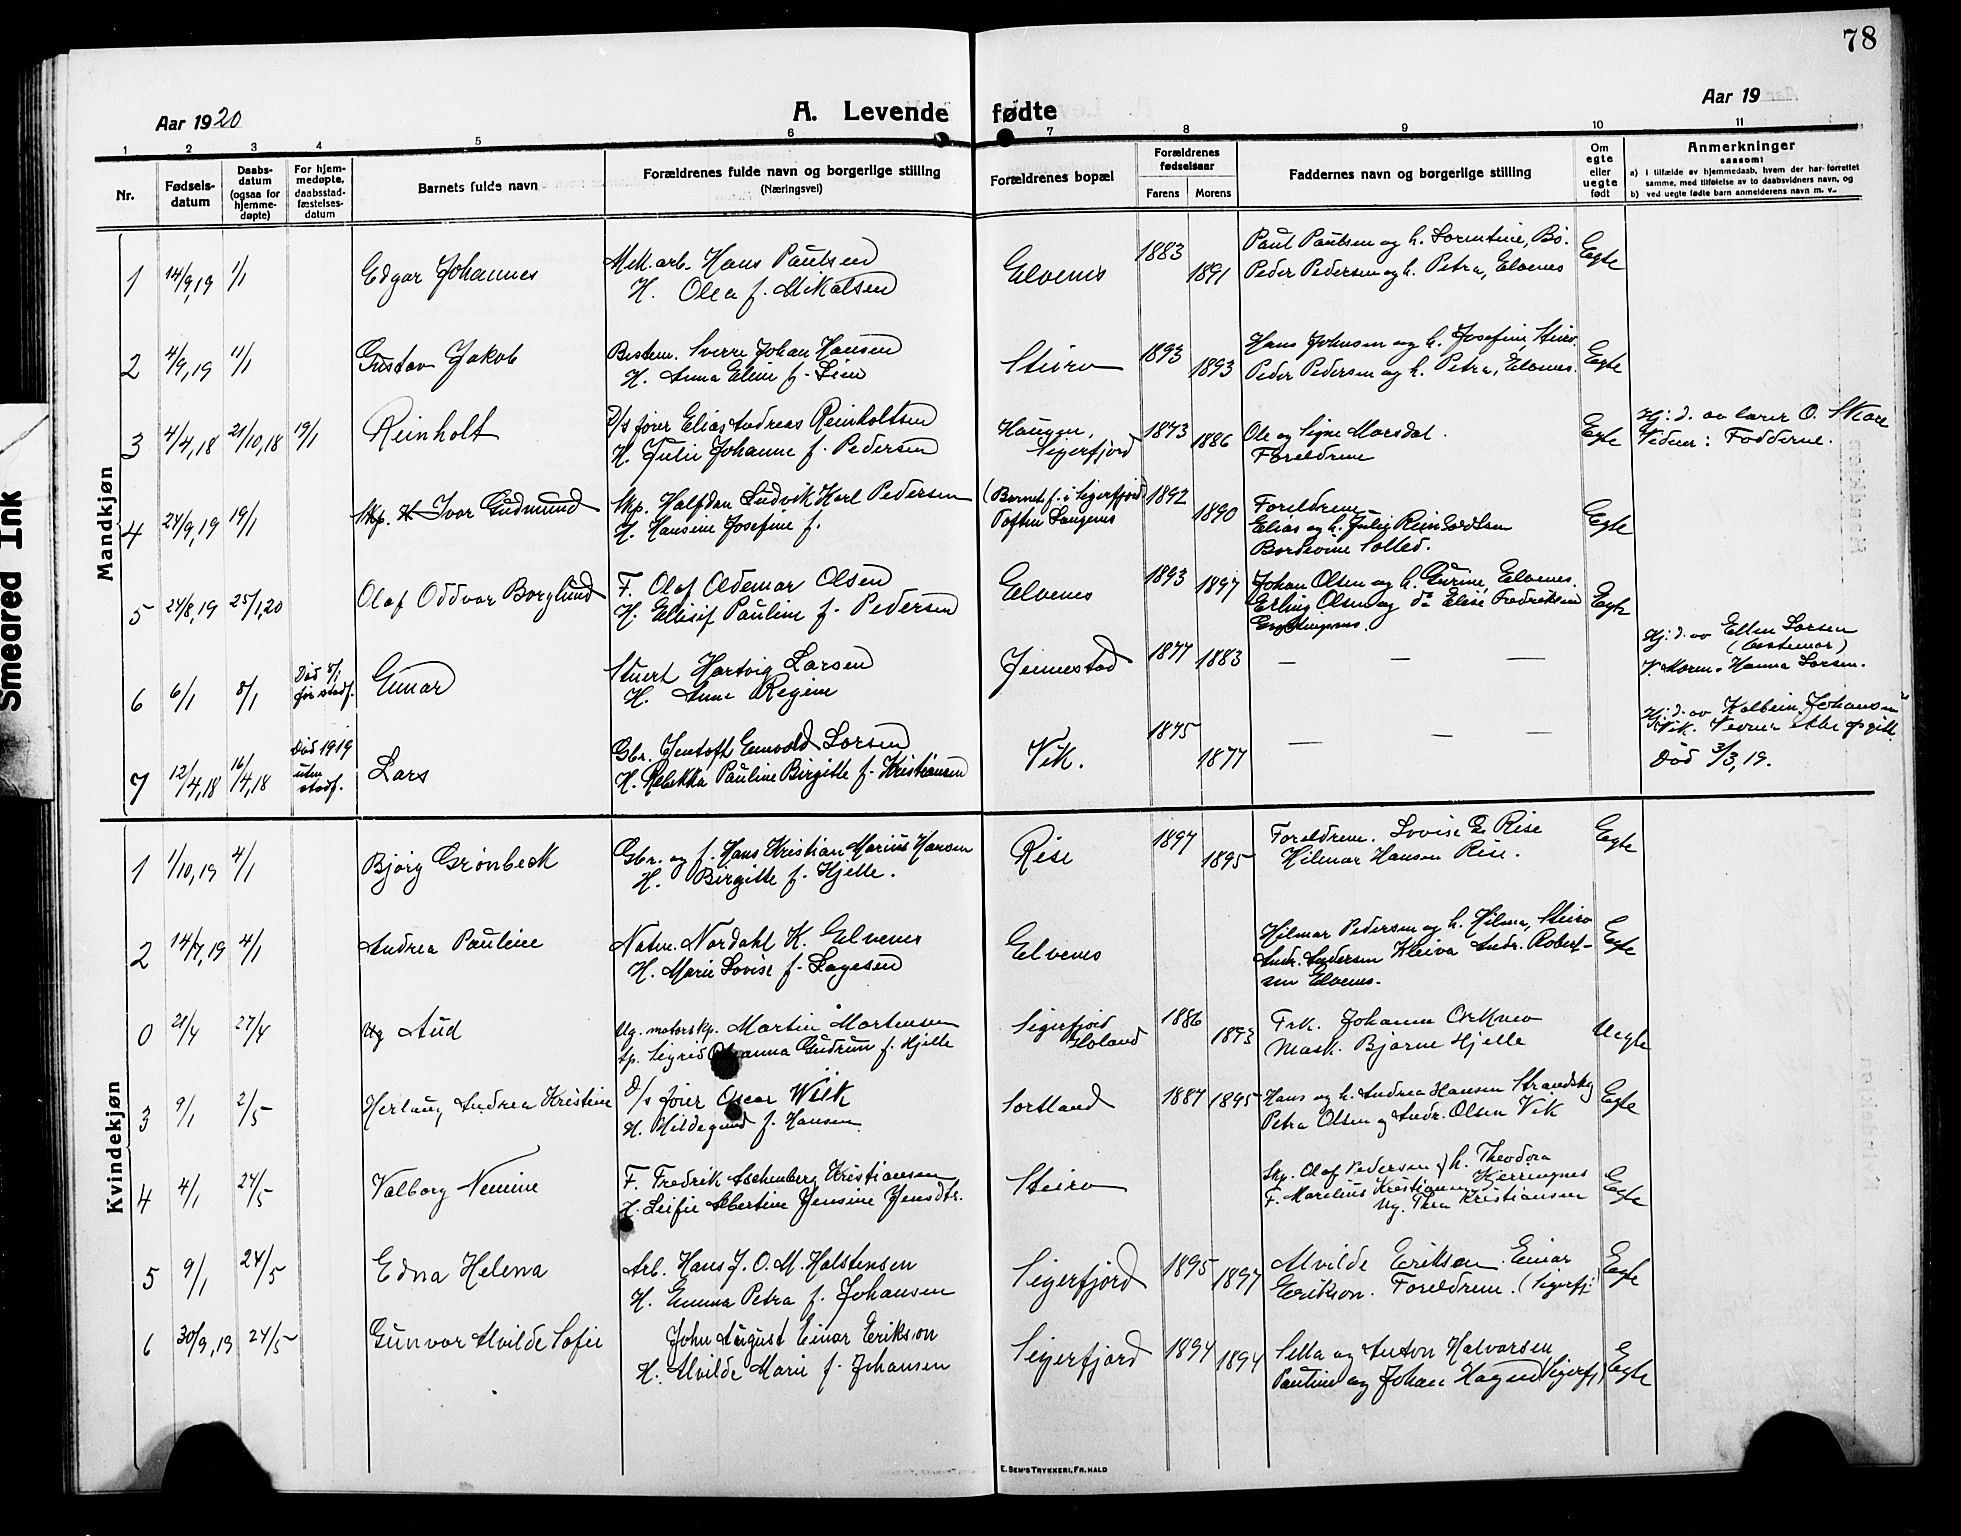 78
Aar 1920
A. Levende fødte
Aar 19
1 2 3 4 5 6 7 8 9 10 11
Nr.
Fødsels-
datum
Daabs-
datum
(ogsaa for
hjemme-
døpte)
For hjem-
medøpte,
daabsstad-
fæstelses-
datum
Barnets fulde navn
Forældrenes fulde navn og borgerlige stilling
(Næringsvei)
Forældrenes bopæl
Forældrenes
fødselsaar
Farens Morens
Faddernes navn og borgerlige stilling
Om
egte
eller
uegte
født
Anmerkninger
saasom:
a) i tilfælde av hjemmedaab, hvem der har forrettet
samme, med tilføielse av to daabsvidners navn, og
b) ved uegte fødte barn anmelderens navn m. v.
Smeared Ink
Mandkjøn
1 14/9,19 1/1 Edgar Johannes
Mek. arb. Hans Paulsen
H. Olea f. Mikalsen
Elvenes 1883 1891
Paul Paulsen og h. Lorentine, Bø.
Peder Pedersen og h. Petra, Elvenes
Egte
2 4/9,19 11/1 Gustav Jakob
Bestem. Sverre Johan Hansen
H. Anna Elene f. Lien
Steiro 1893 1893
Hans Johnsen og h. Josefine, Steiro.
Peder Pedersen og h. Petra, Elvenes.
Egte
3 4/4,18 21/10,18 19/1 Reinholt
D/s fører Elias Andreas Reinholtsen
H. Julie Johanne f. Pedersen
Haugen,
Sigerfjord
1873 1886
Ole og Signe Marsdal.
Foreldrene
Egte
Hj. d. av lærer O. Skare
Vidner: Fadderne.
4 24/9,19 19/1 Skp. Ivar Gudmund
Skp. Halfdan Ludvik Karl Pedersen
H. Hansine Josefine f.
(Barnet f. i Sigerfjord)
Toften Langenes
1892 1890
Foreldrene
Elias og h. Julie Reinholdtsen
Egte
5 24/8,19 25/1,20 Olaf Oddvar Borglund
F. Olaf Oldemar Olsen
H. Ellisif Pauline f. Pedersen
Elvenes 1893 1897
Johan Olsen og h. Gurine, Elvenes.
Erling Olsen og do Elise Fredriksen
Egte
6 6/1 8/1
Død 8/1
før stadf.
Einar
Stuert Hartvig Larsen
H. Anna Regine
Jennestad 1877 1883
— — —
Hj. d. av Ellen Larsen
(bestemor)
V. Moren. Hanna Larsen.
7 12/4,18 16/4,18
Død 1919
uten
stadf.
Lars
Gbr. Jentoft Enevold Larsen
H. Rebekka Pauline Birgitte f. Kristiansen
Vik. 1875 1877
— — —
Hj. d. av Kolbein Johansen
Vik. Vidner ikke opgitt.
Død 3/3,19.
Kvindekjøn
1 1/10,19 4/1 Bjørg Grønbeck
Gbr. og f. Hans Kristian Marius Hansen
H. Birgitte f. Hjelle.
Rise 1897 1895
Foreldrene. Lovise G. Rise
Hilmar Hansen Rise.
Egte
2 14/7,19 4/1 Andrea Pauline
Natm. Nordahl K. Elvenes
H. Marie Lovise f. Lagesen
Elvenes
Hilmar Pedersen og h. Hilma, Steiro
Andr. Andersen Kleiva Andr. Robert-
sen Elvenes.
Egte
0 21/4 27/4 Ug Aud
Ug. motorskp. Martin Mortensen
Sp. Sigrid Johanna Gudrun f. Hjelle
Sigerfjord
Holand
1886 1893
Frk. Johanne
Mask. Bjarne Hjelle
Uegte
3 9/1 2/5 Herlaug Andrea Kristine
D/s fører Oscar Wiik
H. Hildegund f. Hansen
Sortland 1887 1895
Hans og h. Andrea Hansen Strandskog
Petra Olsen og Andr. Olsen Vik
Egte
4 4/1 24/5 Valborg Nemine
F. Fredrik Aschenberg Kristiansen
H. Leifie Albertine Jensine Jensdtr.
Steiro
Skp. Olaf Pedersen og h. Theodora
F. Marelius Kristiansen Kjerringnes
Ug. Thea Kristiansen
Egte
5 9/1 24/5 Edna Helena
Arb. Hans J. O. M. Holstensen
H. Emma Petra f. Johansen
Sigerfjord 1895 1897
Alvilde Erikson. Einar
Erikson. Foreldrene. (Sigerfj.)
Egte
6 30/9,19 24/5 Gunvor Alvilde Sofie
John August Einar Erikson
H. Alvilde Marie f. Johansen
Sigerfjord 1894 1894
Sella og Anton Halvorsen
Pauline og Johan Hagen (Sigerfj)
Egte
E. SEM'S TRYKKERI, FR.HALD